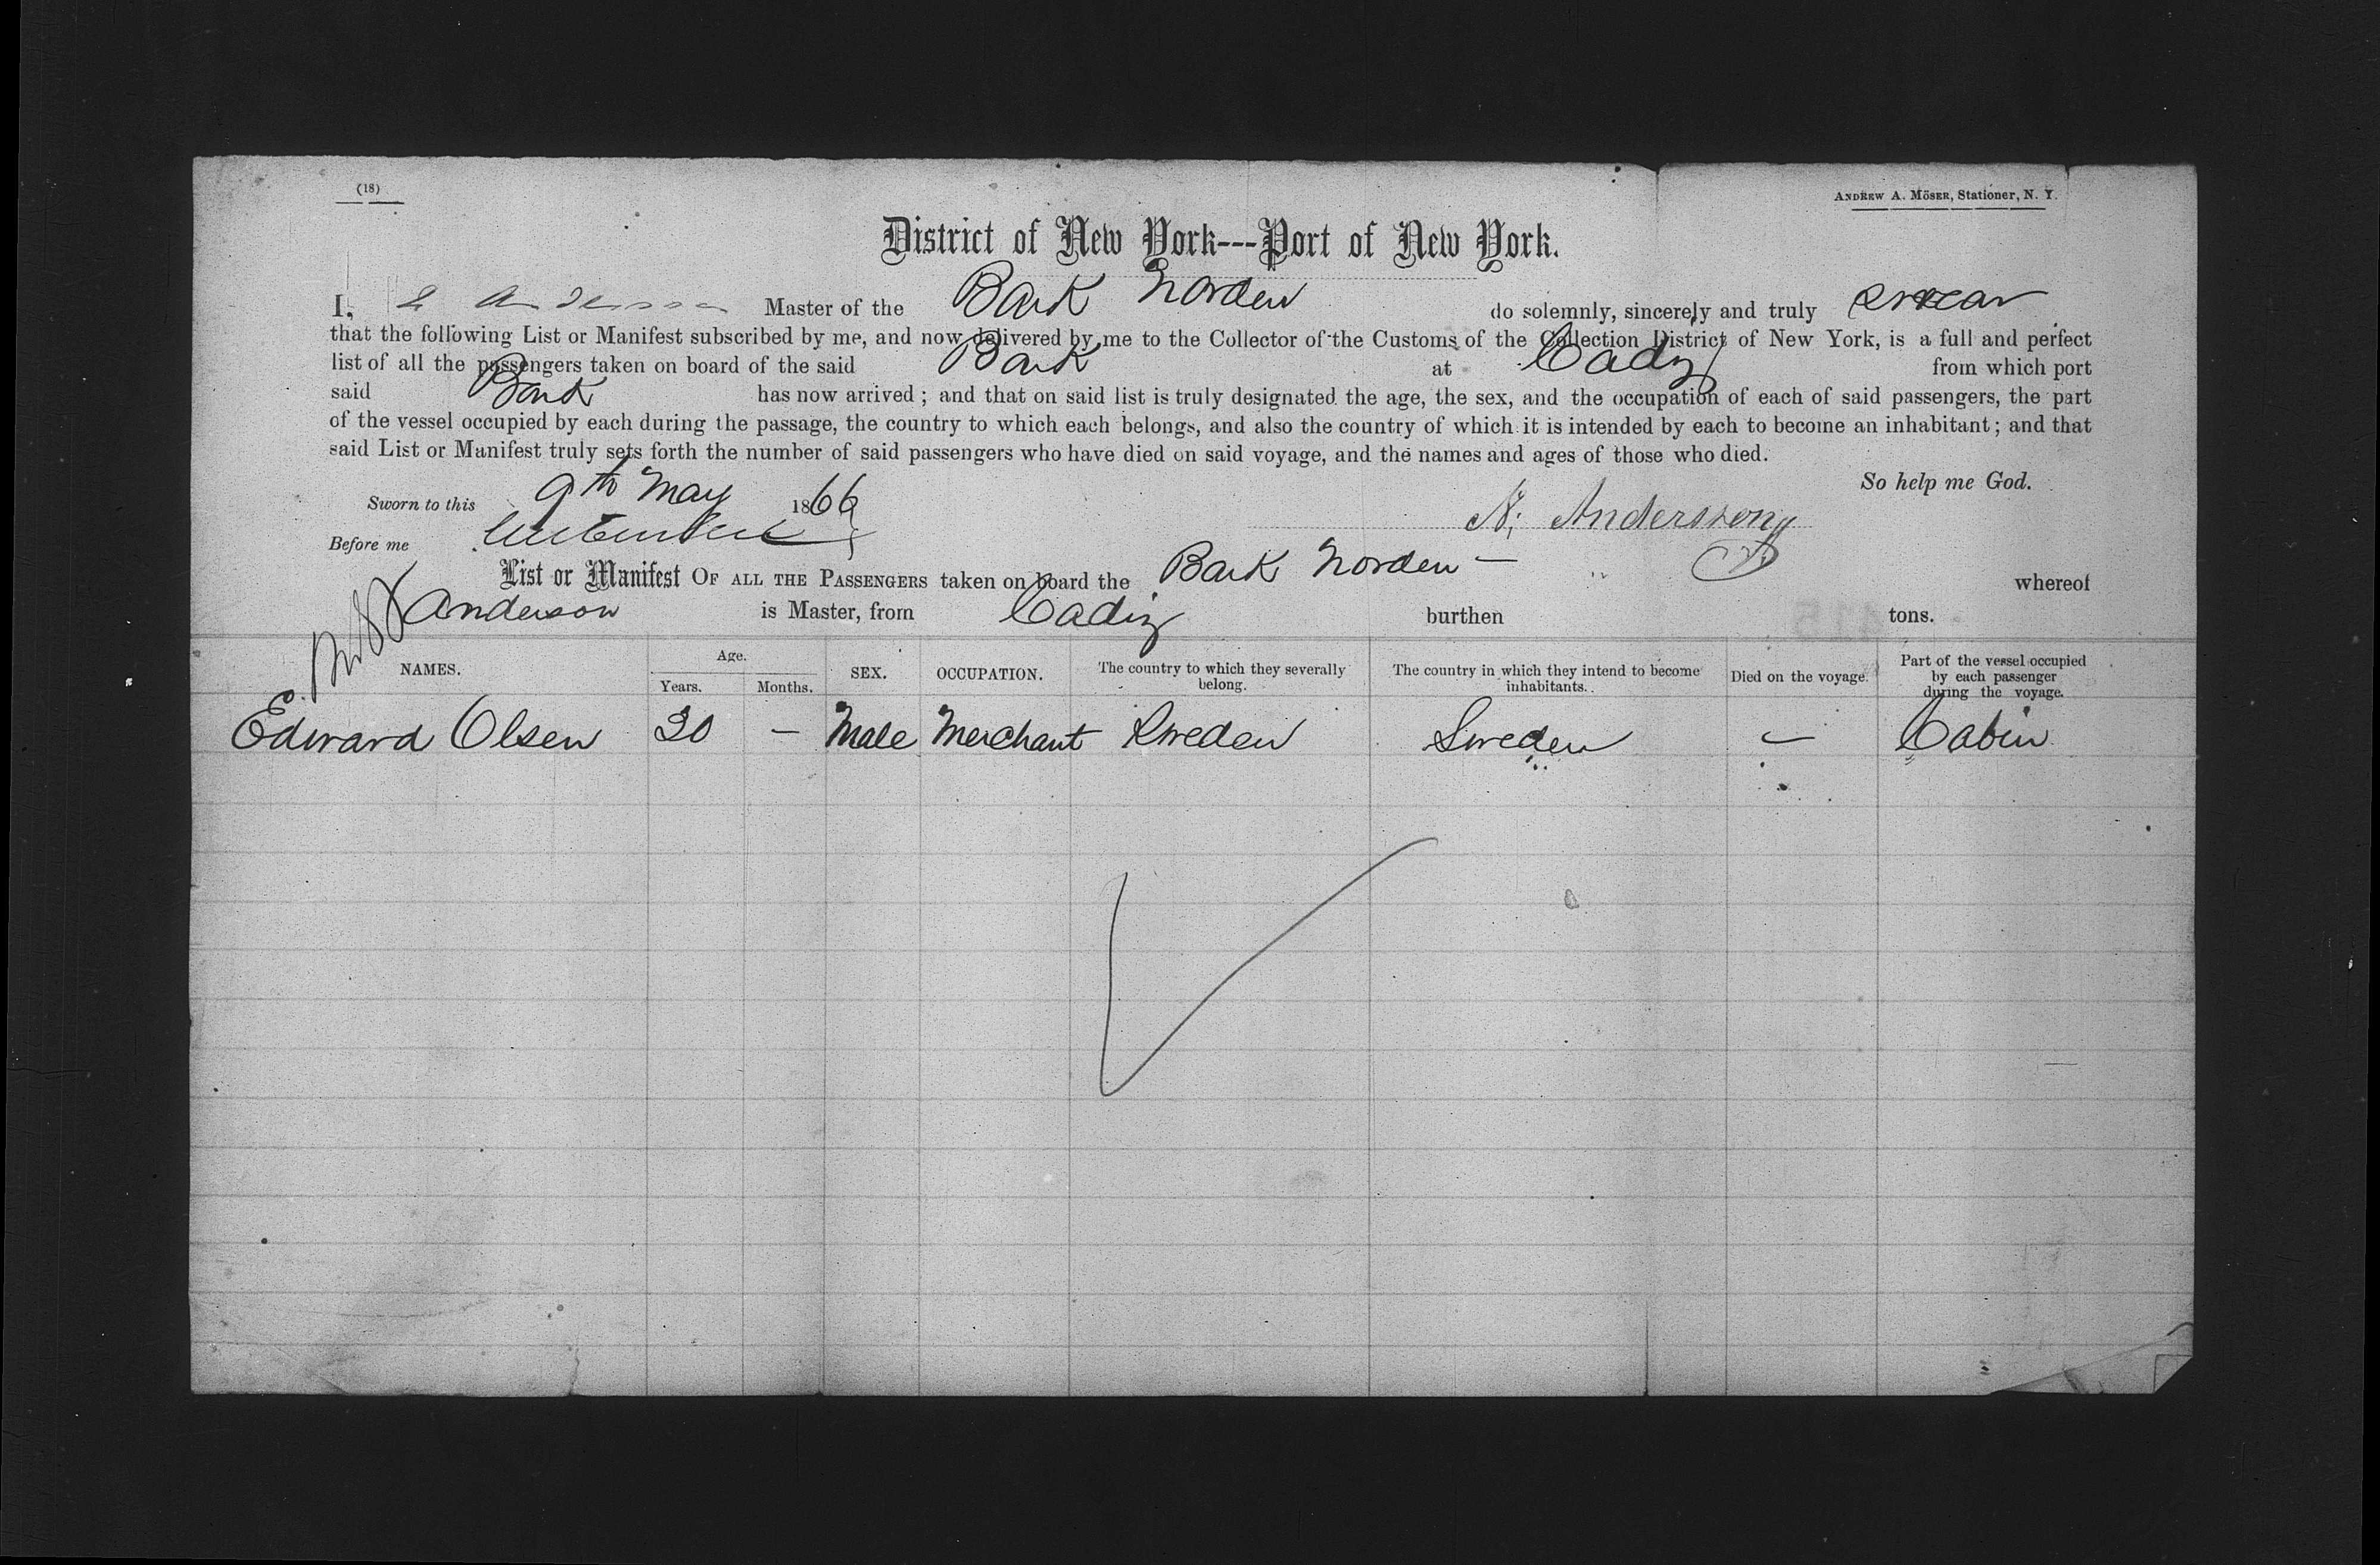 (18)
ANDREW A. MÖSER, Stationer, N. Y.
District of New York---Port of New York.
I, Anderson Master of the Bark Norden do solemnly, sincerely and truly swear
that the following List or Manifest subscribed by me, and now delivered by me to the Collector of the Customs of the Collection District of New York, is a full and perfect
list of all the passengers taken on board of the said Bark at Cadiz from which port
said Bark has now arrived; and that on said list is truly designated the age, the sex, and the occupation of each of said passengers, the part
of the vessel occupied by each during the passage, the country to which each belongs, and also the country of which it is intended by each to become an inhabitant; and that
said List or Manifest truly sets forth the number of said passengers who have died on said voyage, and the names and ages of those who died.
So help me God.
Sworn to this 9th May 1866
N. Andersson
Before me
List or Manifest OF ALL THE PASSENGERS taken on board the Bark Norden — whereof
Anderson is Master, from Cadiz burthen tons.
NAMES. Age. Years. Months. SEX. OCCUPATION. The country to which they severally belong. The country in which they intend to become inhabitants. Died on the voyage. Part of the vessel occupied by each passenger during the voyage.
Edward Olsen 30 — Male Merchant Sweden Sweden — Cabin